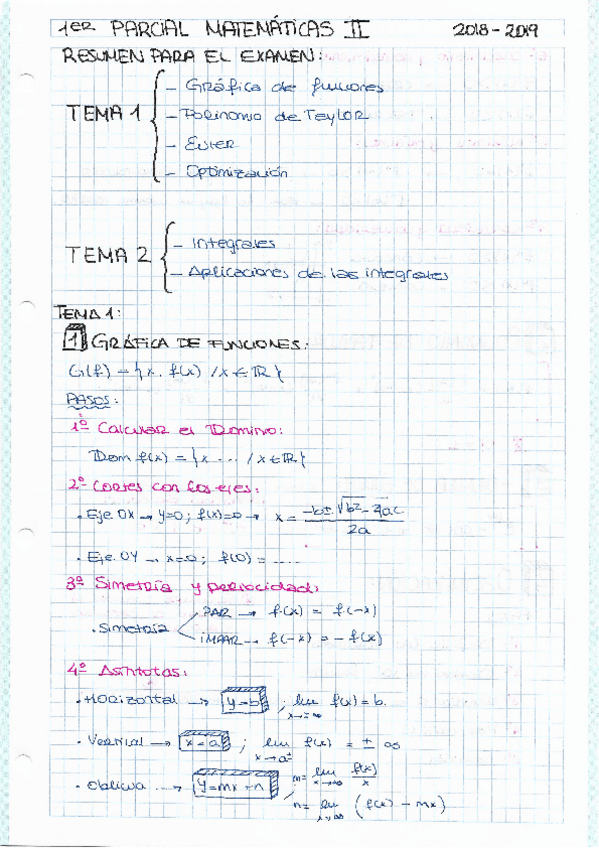 1er PARCIAL MATEMÁTICAS II 2018-2019
RESUMEN PARA EL EXAMEN:
TEMA 1
- Gráfica de funciones
- Polinomio de Taylor
- Euler
- Optimización
TEMA 2
- Integrales
- Aplicaciones de las integrales
TEMA 1:
1 GRÁFICA DE FUNCIONES:
G(f) = {x, f(x) / x ∈ ℝ}
PASOS:
1º Calcular el Dominio:
Dom f(x) = {x ... / x ∈ ℝ}
2º Cortes con los ejes:
. Eje OX → y=0; f(x)=0 → x = (-b ± √(b² - 4ac)) / 2a
. Eje OY → x=0; f(0) = ....
3º Simetría y periocidad:
. Simetría
PAR → f(x) = f(-x)
IMPAR → f(-x) = -f(x)
4º Asíntotas:
. Horizontal → y=b ; lim x→±∞ f(x) = b.
. Vertical → x=a ; lim x→a± f(x) = ± ∞
. Oblicua → y=mx+n
m = lim x→∞ f(x)/x
n = lim x→∞ (f(x) - mx)